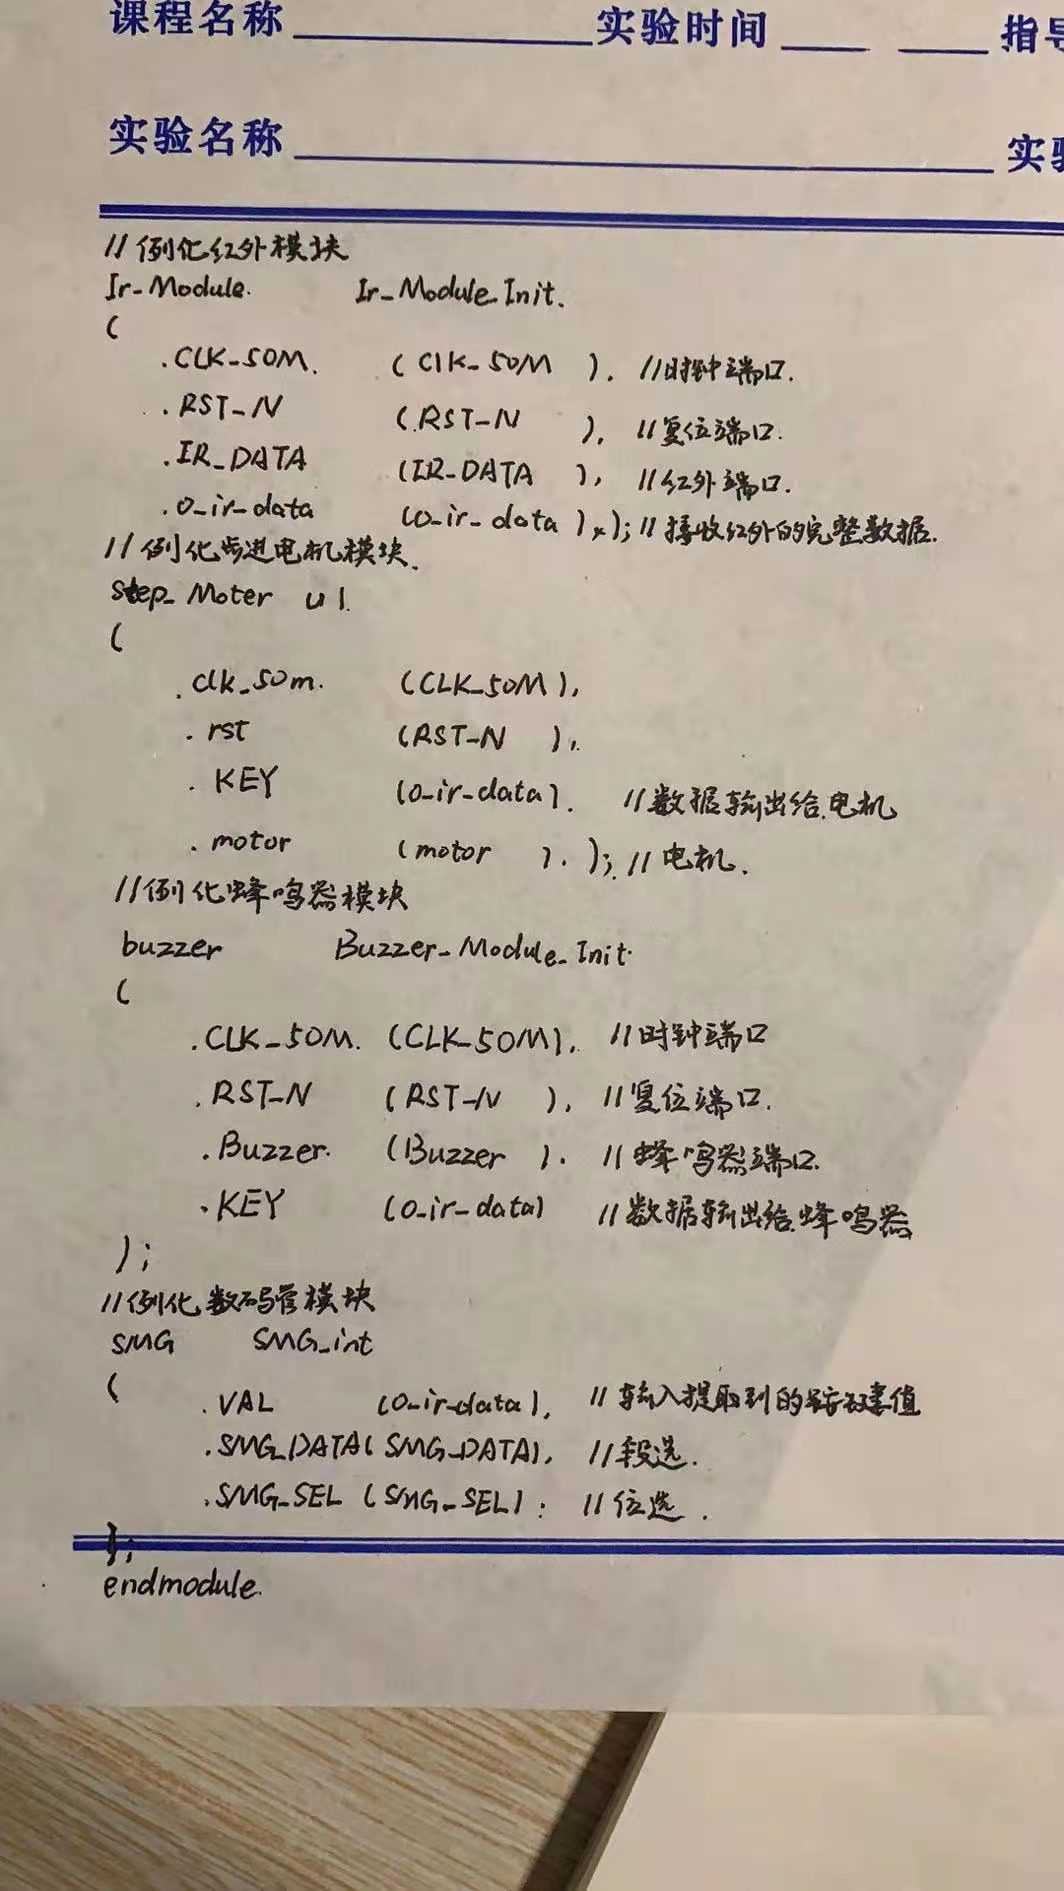 课程名称 实验时间 指导
实验名称 实验
//例化红外模块
Ir_Module. Ir_Module_Init.
(
.CLK_50M. (ClK_50M ), //时钟端口.
.RST_N (RST_N ), //复位端口.
.IR_DATA (IR_DATA ), //红外端口.
.o_ir_data (o_ir_data ) ); //接收红外的完整数据.
//例化步进电机模块.
Step_Moter u1.
(
.clk_50m. (CLK_50M),
.rst (RST_N ),
.KEY (o_ir_data). //数据输出给电机
.motor (motor ). ); //电机.
//例化蜂鸣器模块
buzzer Buzzer_Module_Init.
(
.CLK_50M. (CLK_50M), //时钟端口
.RST_N (RST_N ), //复位端口.
.Buzzer. (Buzzer ). //蜂鸣器端口.
.KEY (o_ir_data) //数据输出给蜂鸣器
);
//例化数码管模块
SMG SMG_int
(
.VAL (o_ir_data), //输入提取到的键值
.SMG_DATA( SMG_DATA), //段选.
.SMG_SEL (SMG_SEL): //位选.
);
endmodule.